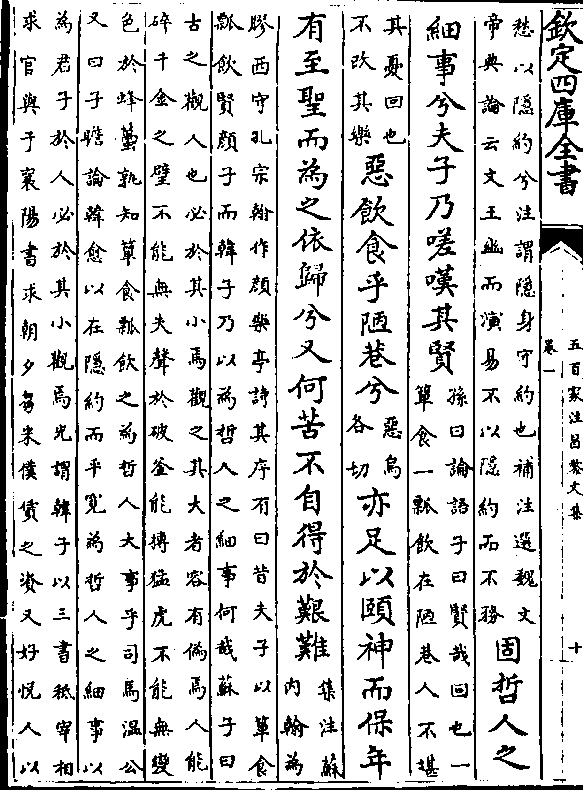 欽定四庫全書
五百家注昌黎文集
卷一
十
愁以隱約兮注謂隱身守約也補注選魏文
帝典論云文王幽而演易不以隱約而不務
固哲人之
細事兮夫子乃嗟嘆其賢
孫曰論語子曰賢哉回也一
簞食一瓢飲在陋巷人不堪
其憂回也
不改其樂
惡飲食乎陋巷兮
惡烏
各切
亦足以頤神而保年
有至聖而為之依歸兮又何苦不自得於艱難
集注蘇
内翰為
膠西守孔宗翰作顔樂亭詩其序有曰昔夫子以簞食
瓢飲賢顔子而韓子乃以為哲人之細事何哉蘇子曰
古之觀人也必於其小焉觀之其大者容有僞焉人能
碎千金之璧不能無失聲於破釜能搏猛虎不能無變
色於蜂蠆孰知簞食瓢飲之為哲人大事乎司馬溫公
又曰子瞻論韓愈以在隱約而平寛為哲人之細事以
為君子於人必於其小觀焉光謂韓子以三書抵宰相
求官與于襄陽書求朝夕芻米僕賃之資又好悦人以